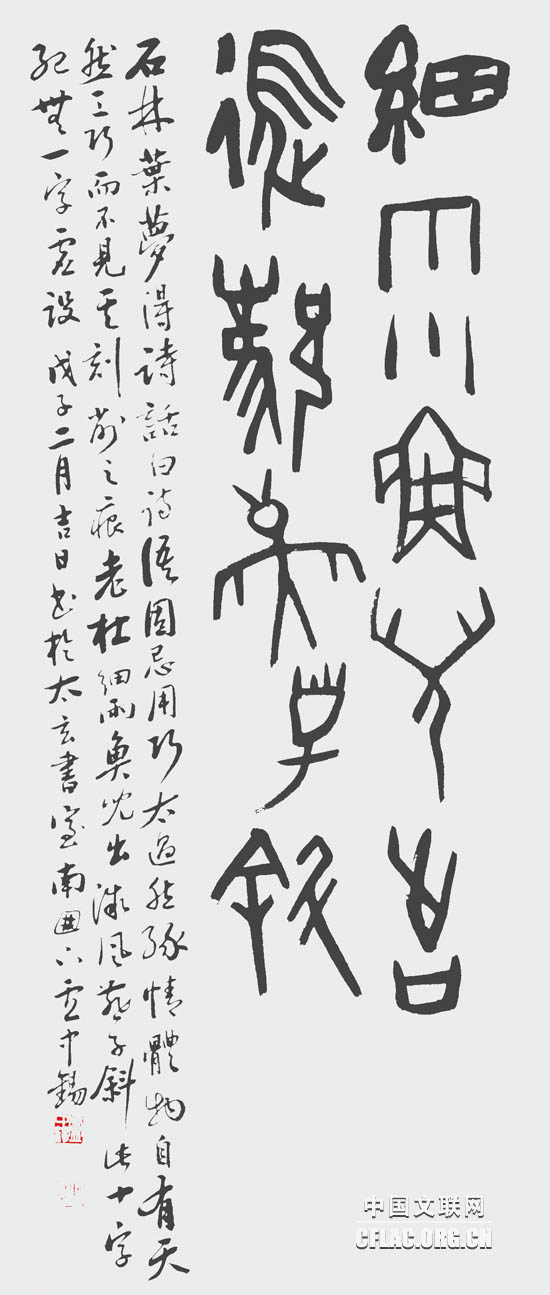 細雨魚兒出
微風燕子斜
石林葉夢得詩話曰詩語固忌用巧太過然緣情體物自有天
然工巧而不見其刻削之痕老杜細雨魚兒出微風燕子斜此十字
殆無一字虛設 戊子二月吉日書於太玄書室南
中国文联网
CFLAC.ORG.CN